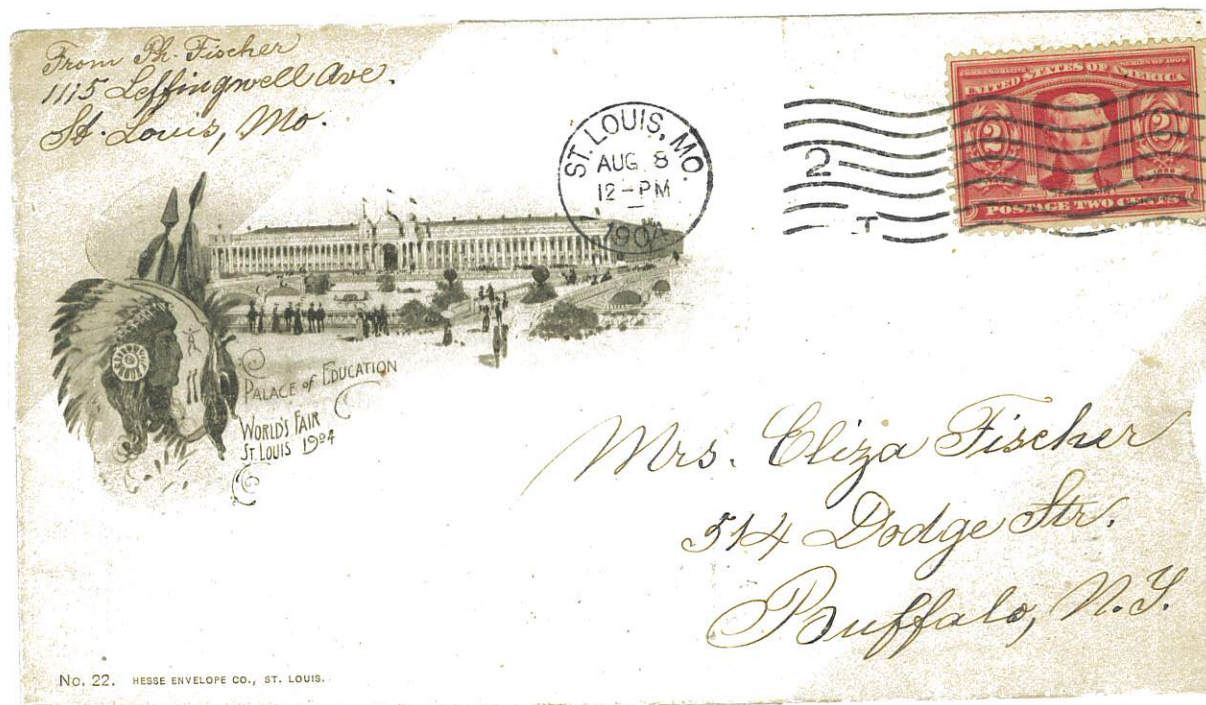 From Ph. Fischer
1115 Leffingwell Ave.
St. Louis, Mo.
ST. LOUIS, MO.
AUG. 8
12-PM
1904
2
T
UNITED STATES OF AMERICA
2 2
POSTAGE TWO CENTS
PALACE OF EDUCATION
WORLD'S FAIR
ST. LOUIS 1904
Mrs. Eliza Fischer
514 Dodge Str.
Buffalo, N.Y.
No. 22. HESSE ENVELOPE CO., ST. LOUIS.